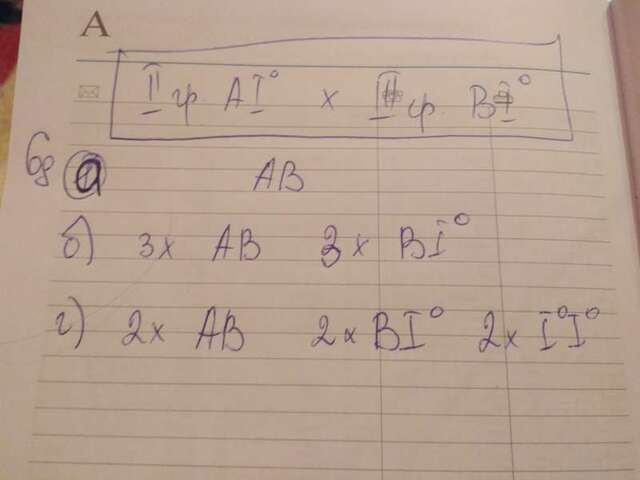 A
II гр. AI⁰ x III гр. BI⁰
а
AB
б) 3x AB 3x BI⁰
г) 2x AB 2x BI⁰ 2x I⁰I⁰